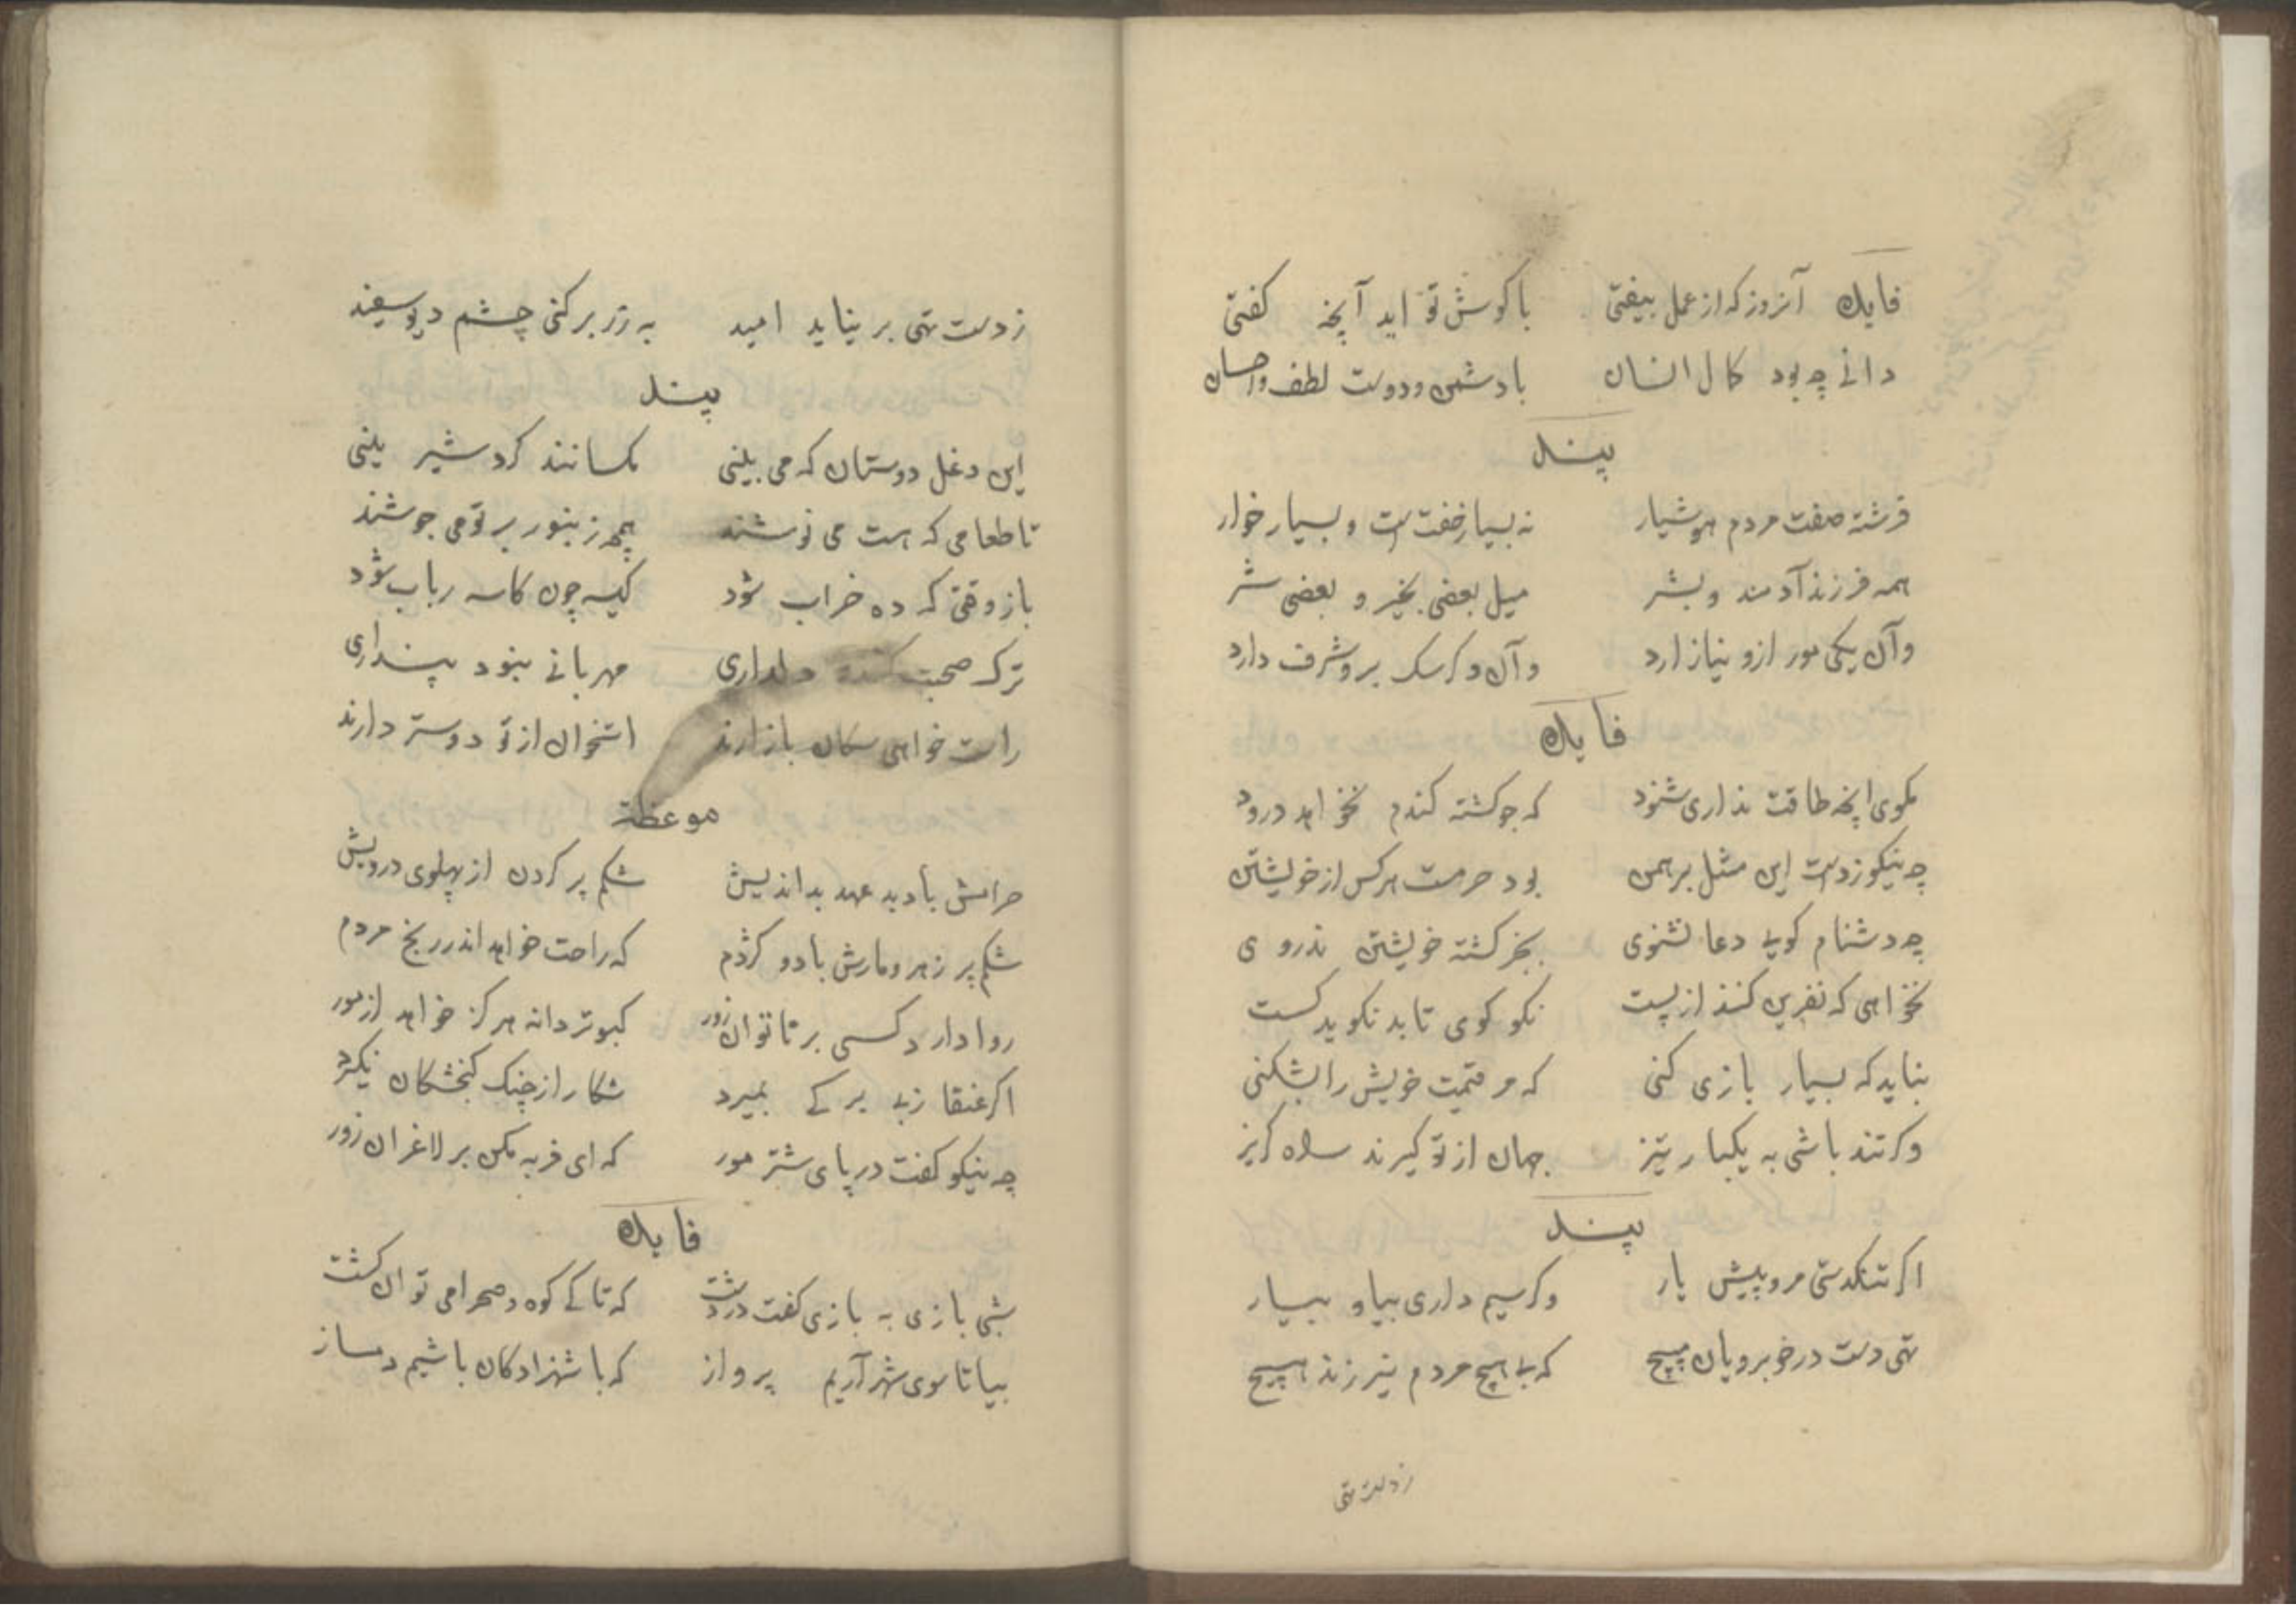 فایده آنروز که از عمل بیفتی با کوش تو اید آنچه کفتی
دانی چه بود کمال انسان با دشمن و دوست لطف و احسان
پند
فرشته صفت مردم هوشیار نه بسیار خفتست و بسیار خوار
همه فرزند آدمند و بشر میل بعضی بخیر و بعضی شر
وآن یکی مور ازو نیازارد وآن دکر سک برو شرف دارد
فایده
مکوی انچه طاقت نداری شنود که جو کشته کندم نخواهد درود
چه نیکو زدست این مثل برهمن بود حرمت هرکس از خویشتن
چه دشنام کویی دعا نشنوی بجز کشته خویشتن ندروی
نخواهی که نفرین کنند از پست نکو کوی تا بد نکوید کست
نباید که بسیار بازی کنی که مر قیمت خویش را بشکنی
وکر تند باشی به یکبار تیز جهان از تو کیرند راه کریز
پند
اکر تنکدستی مرو پیش یار وکر سیم داری بیا و بیار
تهی دست در خوبرویان مپیچ که بی هیچ مردم نیرزند هیچ
زدست تهی
زدست تهی بر نیاید امید به زر برکنی چشم دیو سفید
پند
این دغل دوستان که می بینی مکسانند کرد شیرینی
تا طعامی که هست می نوشند همچو زنبور بر تو می جوشند
باز وقتی که ده خراب شود کیسه چون کاسه رباب شود
ترک صحبت کنند و دلداری مهربانی نبود پنداری
راست خواهی سکان بازارند استخوان از تو دوستر دارند
موعظة
حرامش باد بد عهد بد اندیش شکم پر کردن از پهلوی درویش
شکم پر زهر و مارش باد و کژدم که راحت خواهد اندر رنج مردم
روا دارد کسی بر ناتوان زور کبوتر دانه هرکز خواهد از مور
اکر عنقا زبی برکی بمیرد شکار از چنک کنجشکان نکیرد
چه نیکو کفت در پای شتر مور که ای فربه مکن بر لاغران زور
فایده
شبی بازی به بازی کفت در دشت که تا کی کوه و صحرا می توان کشت
بیا تا سوی شهر آریم پرواز که با شهزادکان باشیم دمساز